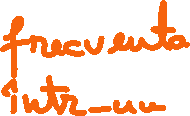 frecventa
într-un